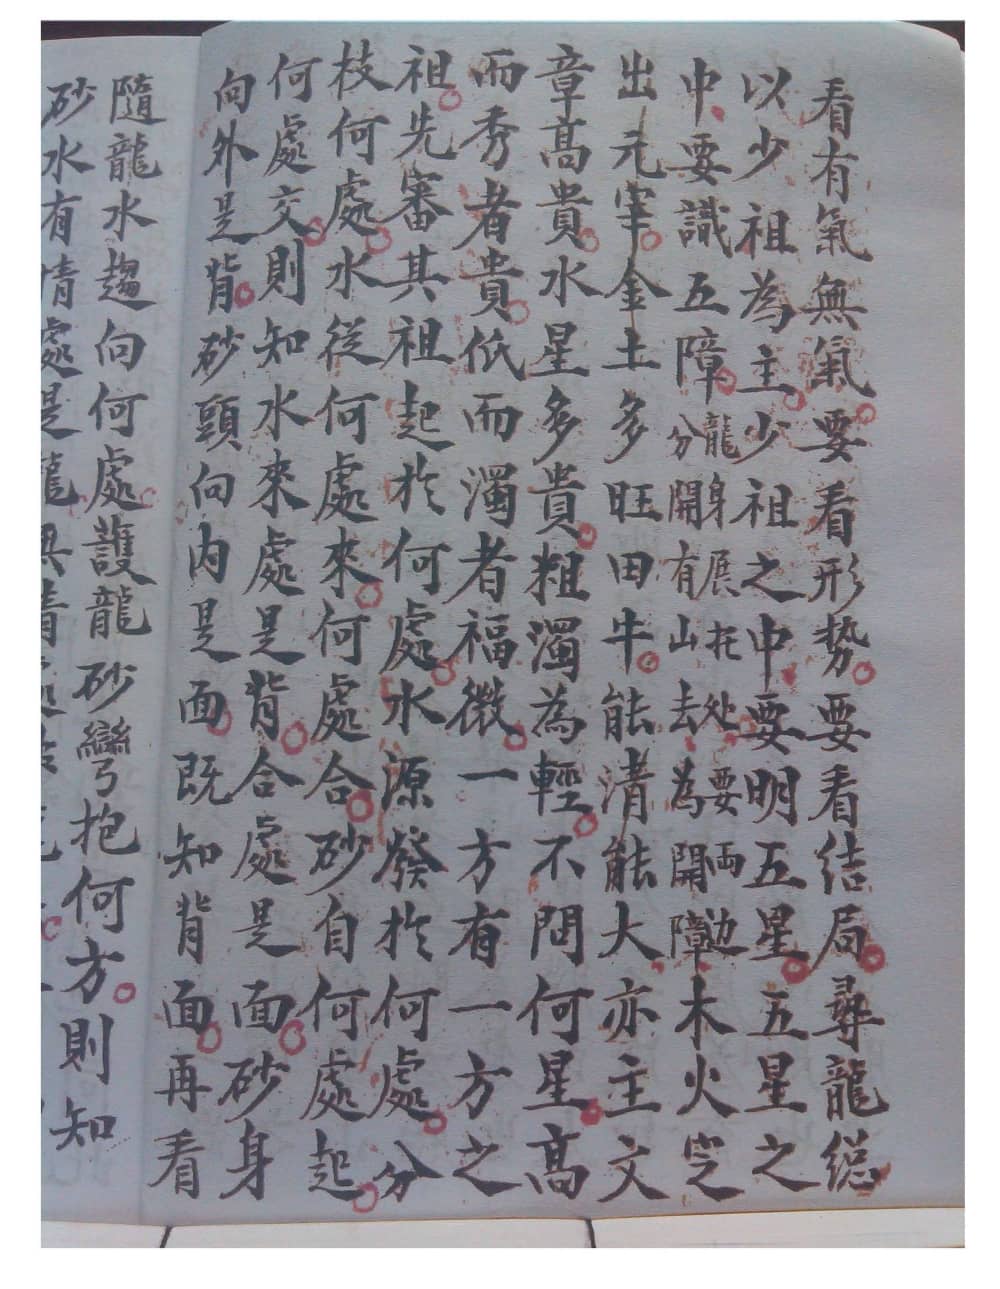 看有氣無氣要看形勢要看结局尋龍総
以少祖為主少祖之中要明五星五星之
中要識五障龍身展扦处要両边分開有山去為開障木火
出元宰金土多旺田牛能清能大亦主文
章髙貴水星多貴粗濁為輕不問何星髙
而秀者貴低而濁者福微一方有一方之
祖先審其祖起於何處水源發於何處分
枝何處水從何處來何處合砂自何處起
何處交則知水來處是背合處是面砂身
向外是背砂頭向内是面既知背面再看
隨龍水趨向何處護龍砂彎抱何方則知
砂水有情處是龍